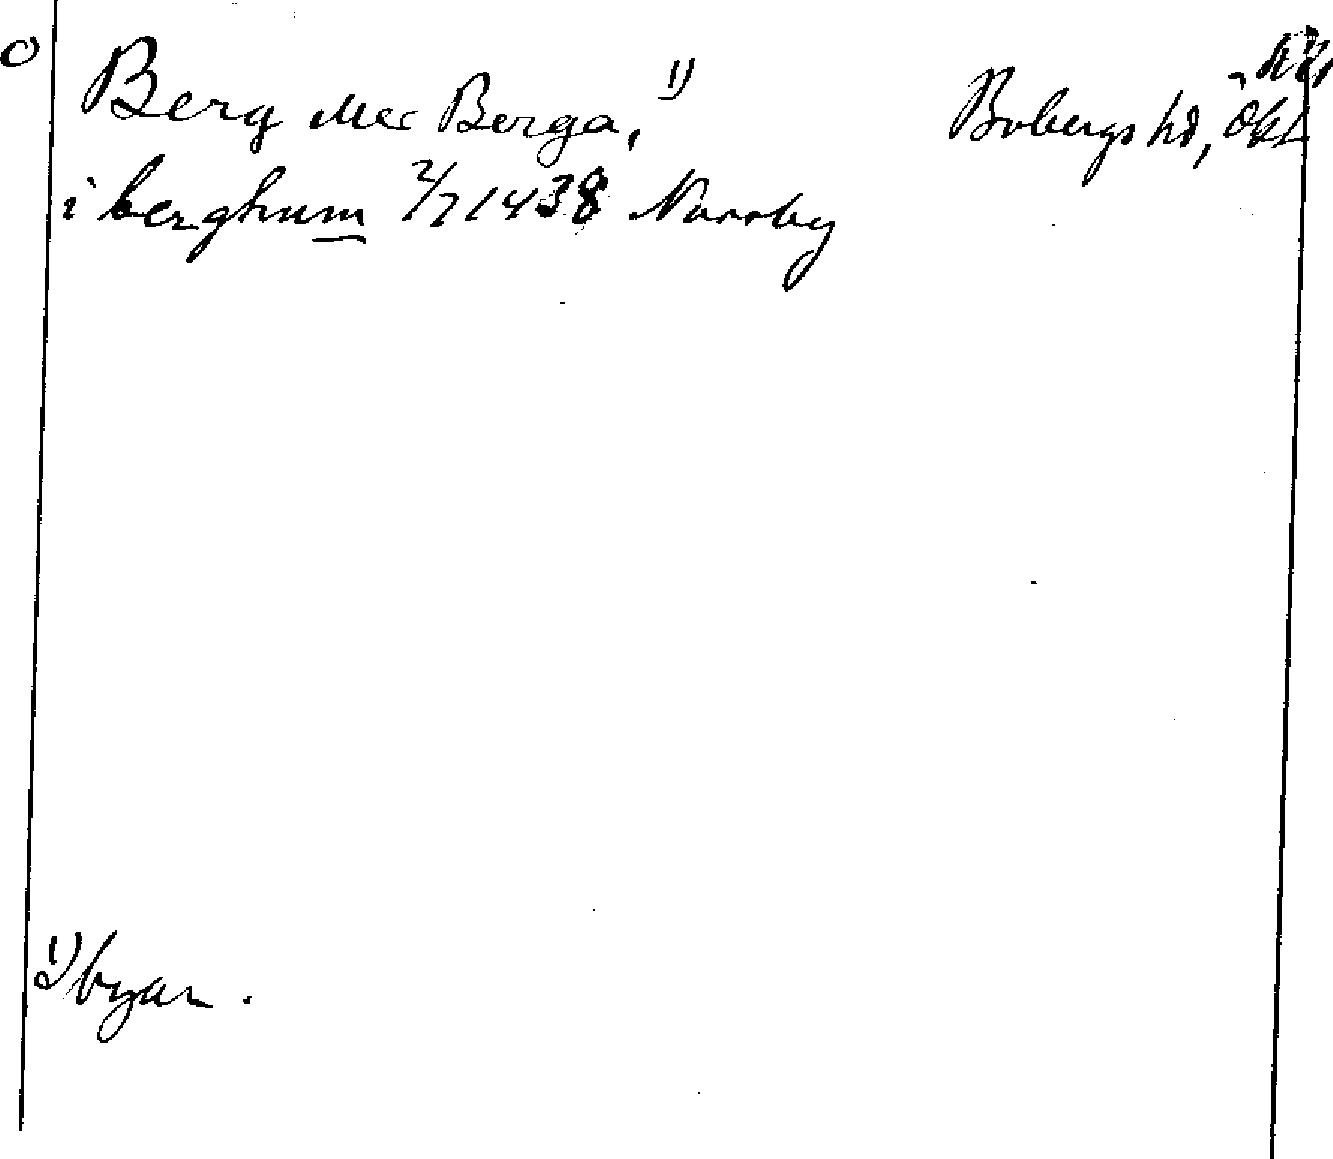 Berg eller Berga, 1)
Bobergs hd, Ögl.
i berghum 2/7 1438 Norrby
1) byar.